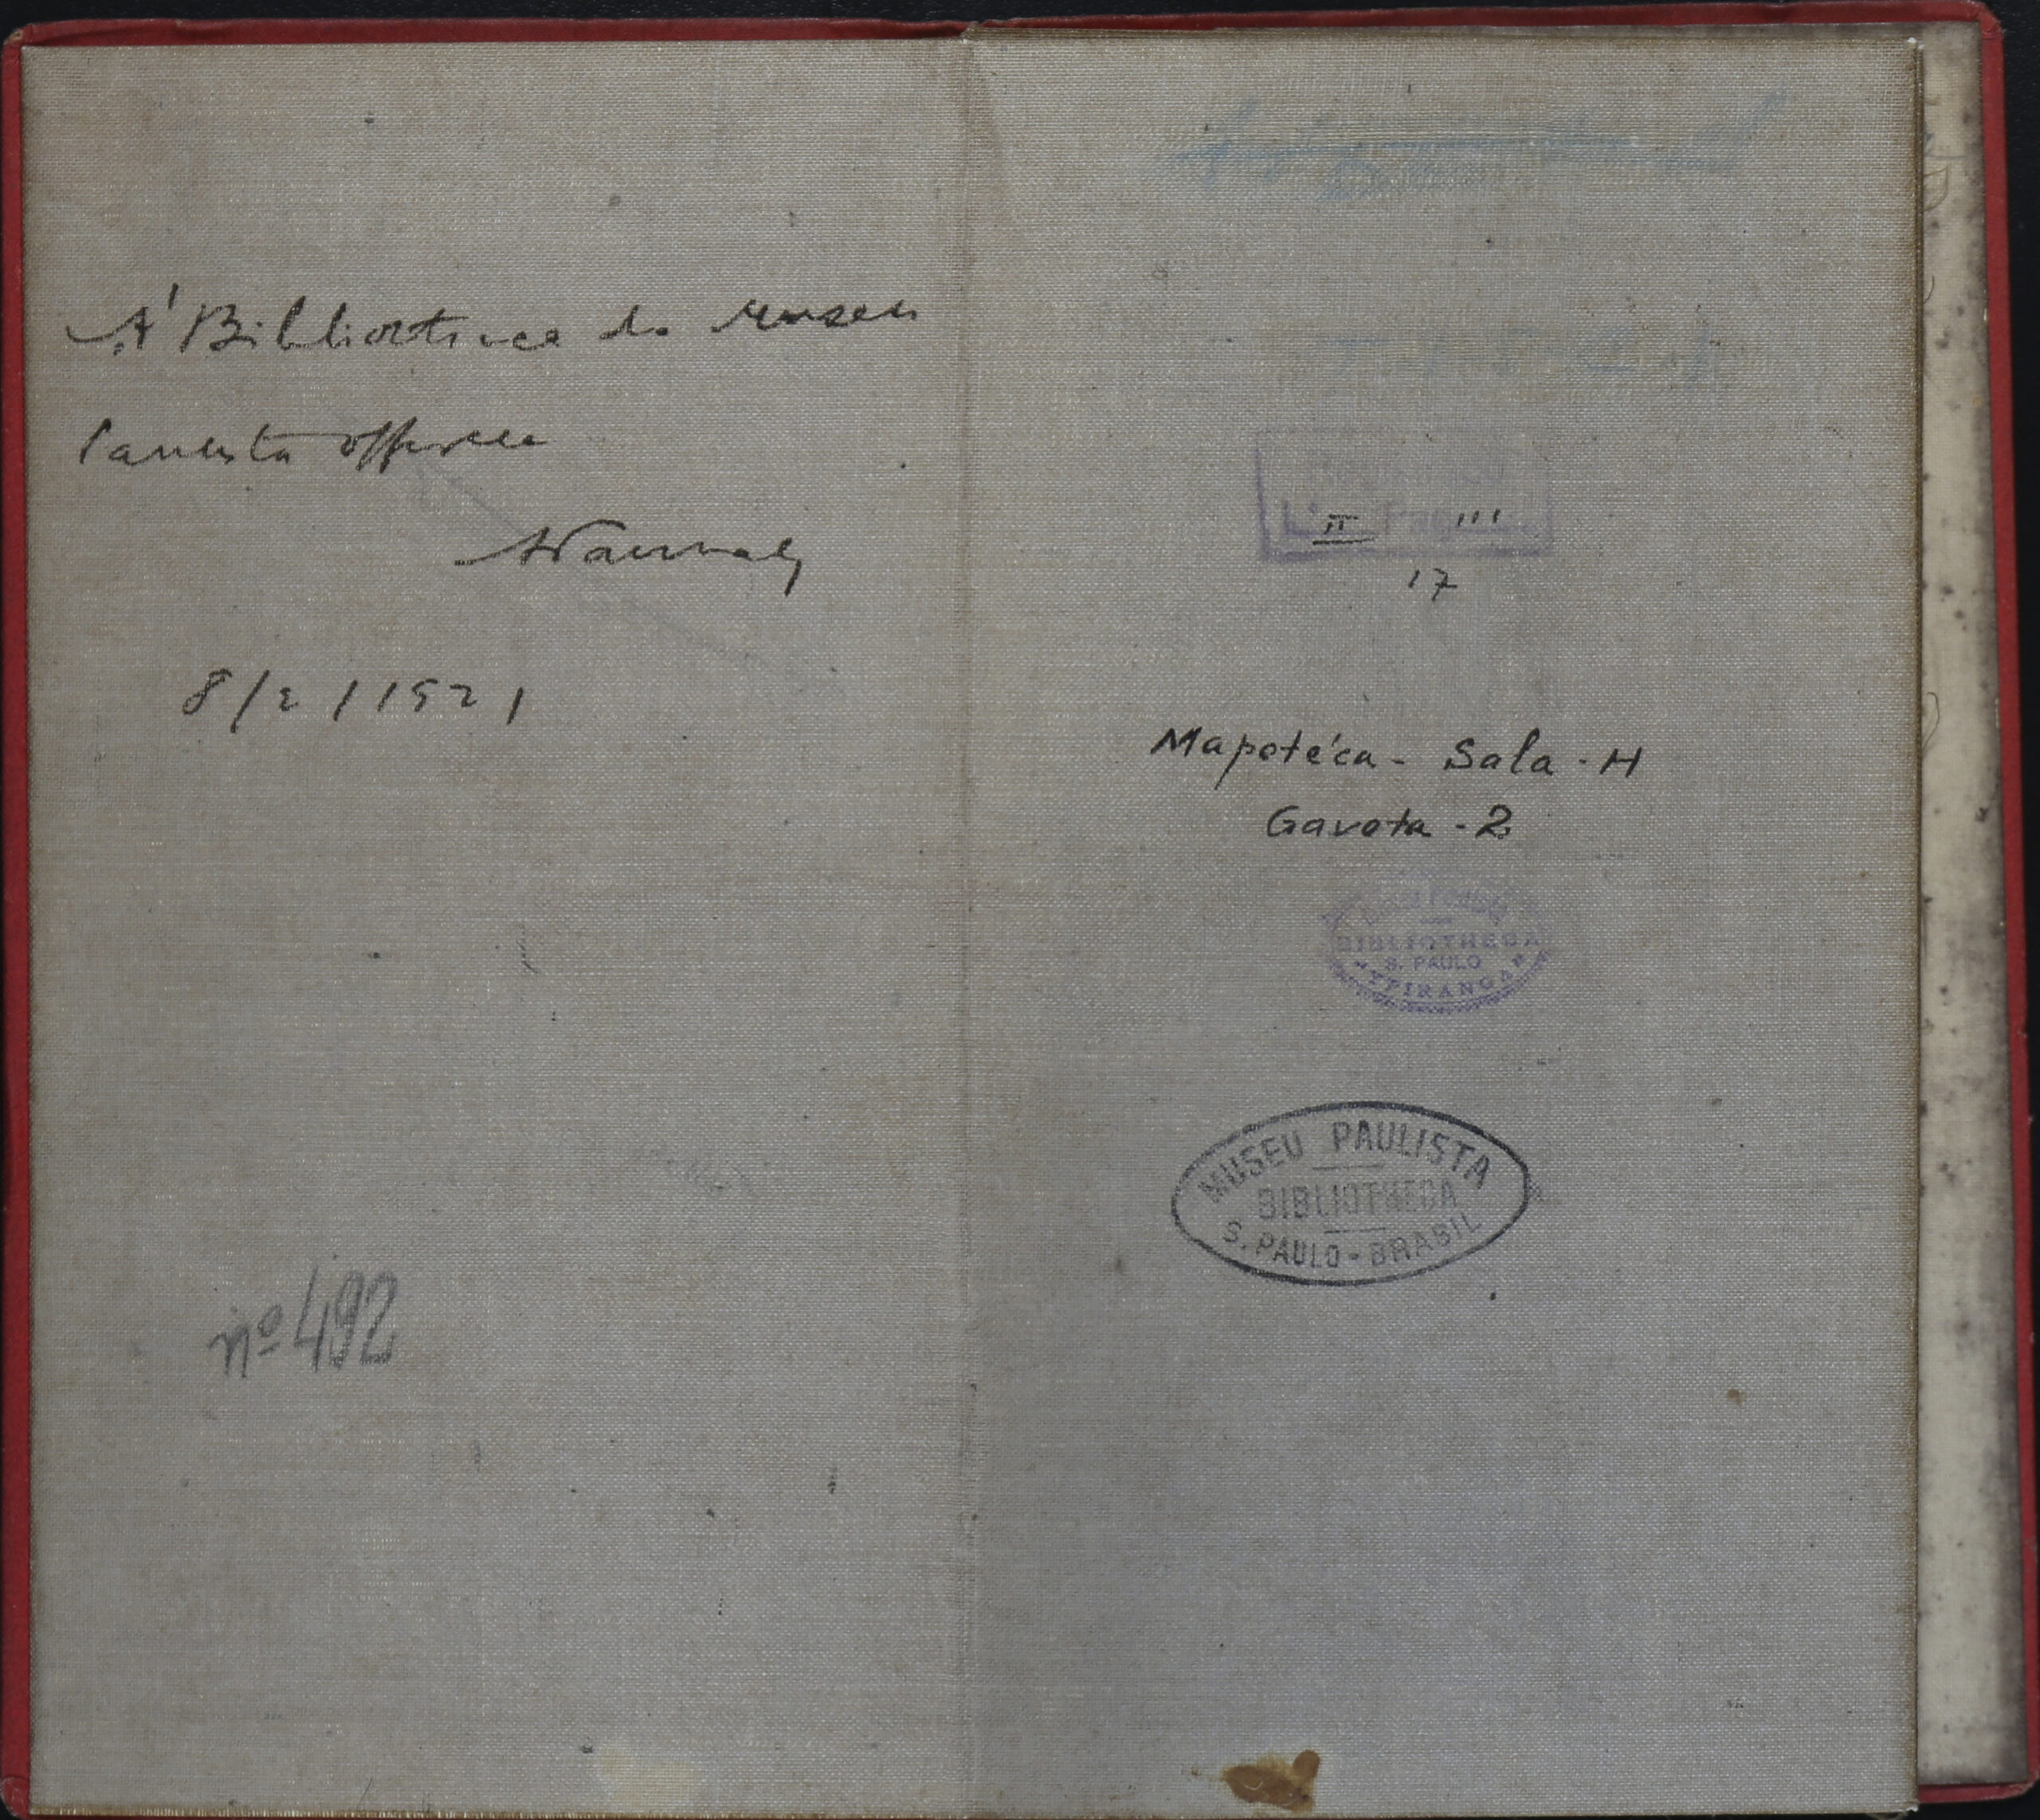 A' Bibliotheca do Museu
Paulista offerece
8/2/1921
nº 492
II III
17
Mapotéca - Sala - H
Gaveta - 2
BIBLIOTHECA
S. PAULO
YPIRANGA
MUSEU PAULISTA
BIBLIOTHECA
S. PAULO - BRASIL